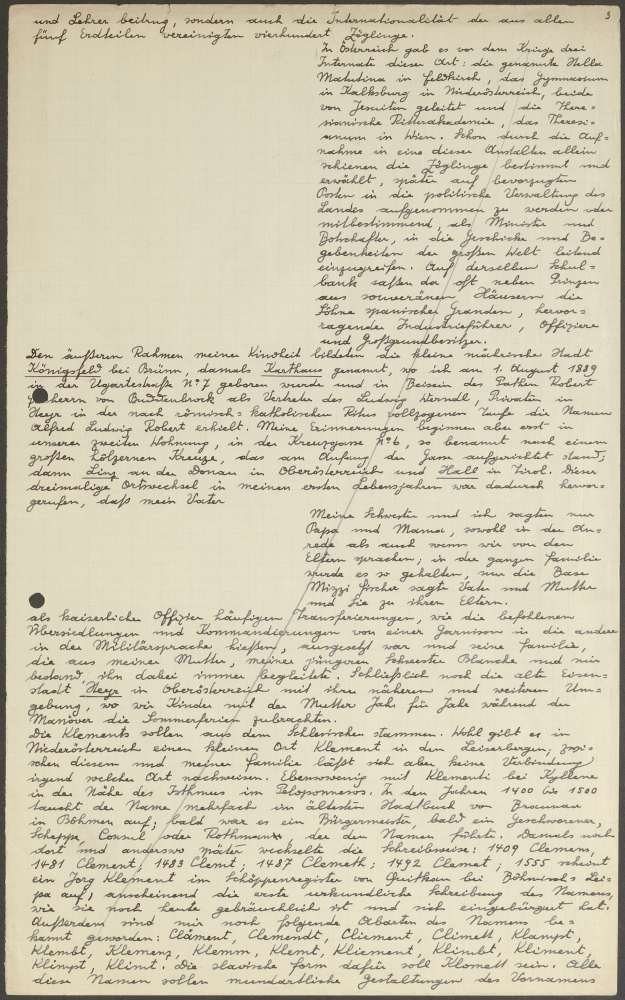 3
und Lehrer beitrug, sondern auch die Internationalität der aus allen
fünf Erdteilen vereinigten vierhundert Zöglinge.
In Österreich gab es vor dem Kriege drei
Internate dieser Art: die genannte Stella
Matutina in Feldkirch, das Gymnasium
in Kalksburg in Niederösterreich, beide
von Jesuiten geleitet und die There=
sianische Ritterakademie, das Theresi=
anum in Wien. Schon durch die Auf=
nahme in eine dieser Anstalten allein
schienen die Zöglinge bestimmt und
erwählt, später auf bevorzugten
Posten in die politische Verwaltung des
Landes aufgenommen zu werden oder
mitbestimmend, als Minister und
Botschafter, in die Geschicke und Be=
gebenheiten der großen Welt leitend
einzugreifen. Auf derselben Schul=
bank saßen da oft neben Prinzen
aus souveränen Häusern die
Söhne spanischer Granden, hervor=
ragender Industrieführer, Offiziere
und Großgrundbesitzer.
Den äußeren Rahmen meiner Kindheit bildeten die kleine mährische Stadt
Königsfeld bei Brünn, damals Karthaus genannt, wo ich am 1. August 1889
in der Ugartestraße No 7 geboren wurde und in Beisein des Pathen Robert
herrn von Buddenbrock als Vertreter des Ludwig Werndl, Privatier in
Steyr in der nach römisch=katholischen Ritus vollzogenen Taufe die Namen
Alfred Ludwig Robert erhielt. Meine Erinnerungen beginnen aber erst in
unserer zweiten Wohnung, in der Kreuzgasse No 6, so benannt nach einem
großen hölzernen Kreuze, das am Anfang der Gasse aufgerichtet stand;
dann Linz an der Donau in Oberösterreich und Hall in Tirol. Dieser
dreimalige Ortwechsel in meinen ersten Lebensjahren war dadurch hervor=
gerufen, daß mein Vater
Meine Schwester und ich sagten nur
Papa und Mama, sowohl in der An=
rede als auch wenn wir von den
Eltern sprachen; in der ganzen Familie
wurde es so gehalten, nur die Base
Mizzi Fischer sagte Vater und Mutter
und Sie zu ihren Eltern.
als kaiserlicher Offizier häufigen Transferierungen, wie die befohlenen
Übersiedlungen und Kommandierungen von einer Garnison in die andere
in der Militärsprache hießen, ausgesetzt war und seine Familie,
die aus meiner Mutter, meiner jüngeren Schwester Blanche und mir
bestand, ihn dabei immer begleitete. Schließlich noch die alte Eisen=
stadt Steyr in Oberösterreich mit ihrer näheren und weiteren Um=
gebung, wo wir Kinder mit der Mutter Jahr für Jahr während der
Manöver die Sommerferien zubrachten.
Die Klements sollen aus dem Schlesischen stammen. Wohl gibt es in
Niederösterreich einen kleinen Ort Klement in den Leiserbergen; zwi=
schen diesem und meiner Familie läßt sich aber keine Verbindung
irgend welcher Art nachweisen. Ebensowenig mit Klementi bei Kyllene
in der Nähe des Isthmus im Peloponnesos. In den Jahren 1400 bis 1500
taucht der Name mehrfach im ältesten Stadtbuch von Braunau
in Böhmen auf; bald war es ein Bürgermeister, bald ein Geschworener,
Scheppe, Consul oder Rothmann, der den Namen führte. Damals noch
dort und anderswo später wechselte die Schreibweise: 1409 Clemens,
1481 Clement, 1483 Clemt; 1487 Clemeth; 1492 Clemat; 1555 scheint
ein Jorg Klement im Schöppenregister von Quitkau bei Böhmisch=Lei=
pa auf, anscheinend die erste urkundliche Schreibung des Namens,
wie sie noch heute gebräuchlich ist und sich eingebürgert hat.
Außerdem sind mir noch folgende Abarten des Namens be=
kannt geworden: Clâment, Clemendt, Cliement, Climett, Klampt,
Klembt, Klemenz, Klemm, Klemt, Kliement, Klimbt, Kliment,
Klimpt, Klimt. Die slavische Form dafür soll Klomett sein. Alle
diese Namen sollen mundartliche Gestaltungen des Vornamens